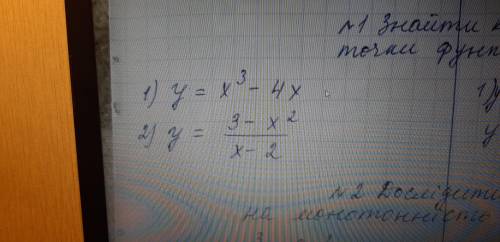 №1 Знайти
точки функ
1) y = x³ - 4x
2) y = (3 - x²)/(x - 2)
1)
y
№2 Дослідити
на монотонність